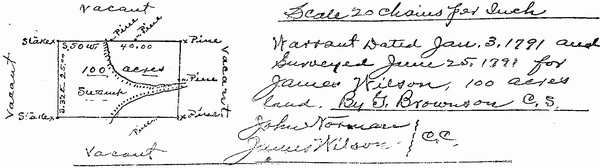 Vacant
Pine
Pine
Stake
S, 50 W
40.00
Pine
100 acres
S. 32 E. 25.00
Pine
Swamp
Stake
Pine
Pine
Vacant
Vacant
Vacant
Scale 20 chains per Inch
Warrant Dated Jan. 3, 1791 and
Surveyed June 25, 1791 for
James Wilson, 100 acres
land. By J. Brownson C. S.
John Norman
James Wilson } C.C.